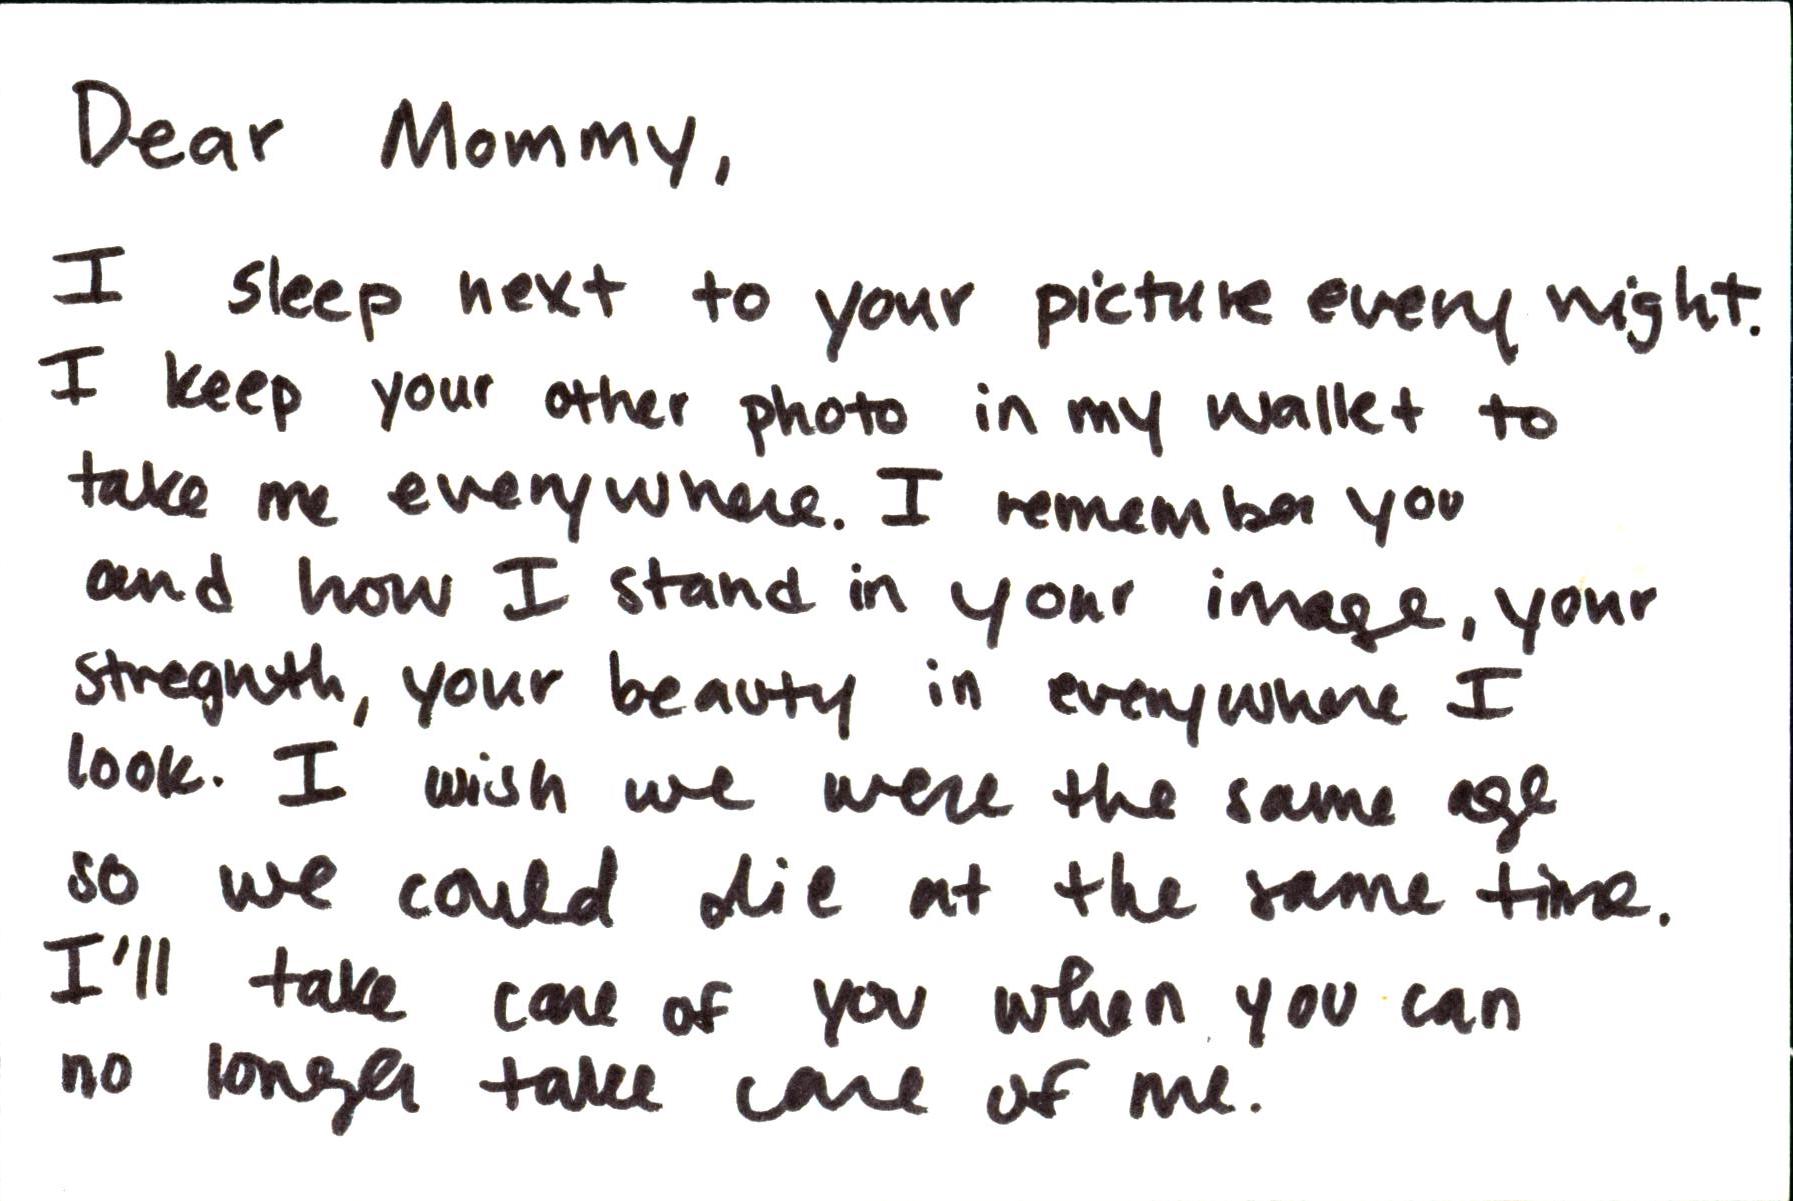 Dear Mommy,
I sleep next to your picture every night.
I keep your other photo in my wallet to
take me everywhere. I remember you
and how I stand in your image, your
stregnth, your beauty in everywhere I
look. I wish we were the same age
so we could die at the same time.
I'll take care of you when you can
no longer take care of me.